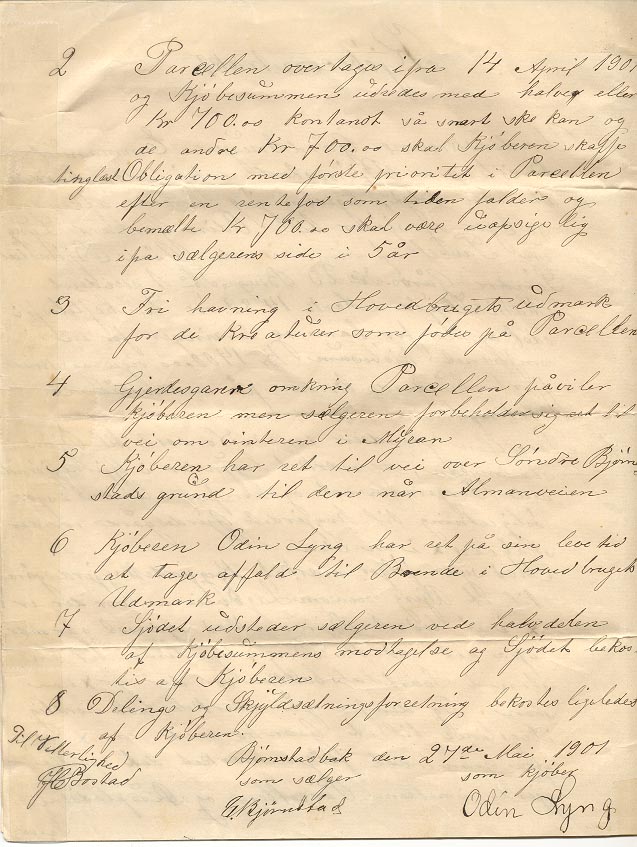 2 Parcellen overtages ifra 14 April 1901
og Kjöbesummen udredes med halve eller
Kr 700.00 kontandt så snart ske kan og
de andre Kr 700.00 skal Kjöberen skaffe
tinglæst Obligation med første prioritet i Parcellen
efter en rentefod som tiden falder og
bemælte Kr 700.00 skal være uopsigelig
ifra sælgerens side i 5 år
3 Fri havning i Hovedbrugets udmark
for de Kreaturer som födes på Parcellen
4 Gjerdesgaren omkring Parcellen påviler
kjöberen men sælgeren forbeholder sig ret til
vei om vinteren i Myran
5 Kjöberen har ret til vei over Söndre Björn
stads grund til den når Almanveien
6 Kjöberen Odin Lyng har ret på sin levetid
at tage affald til Brende i Hovedbrugets
Udmark
7 Sjödet udsteder sælgeren ved halvdelen
af Kjöbesummens modtagelse og Sjödet bekos
tes af Kjöberen
8 Delings og Skyldsætningsforretning bekostes ligeledes
af Kjöberen.
Til Vitterlighed
Bostad
Björnstadbak den 27de Mai 1901
som sælger som kjöber
Björnstad Odin Lyng